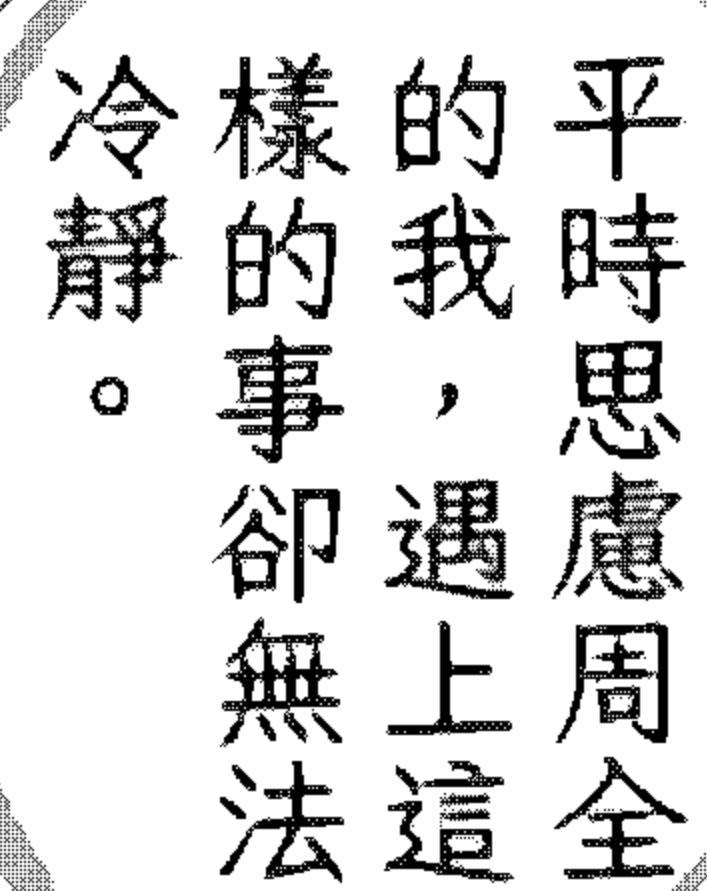 平時思慮周全
的我，遇上這
樣的事卻無法
冷靜。